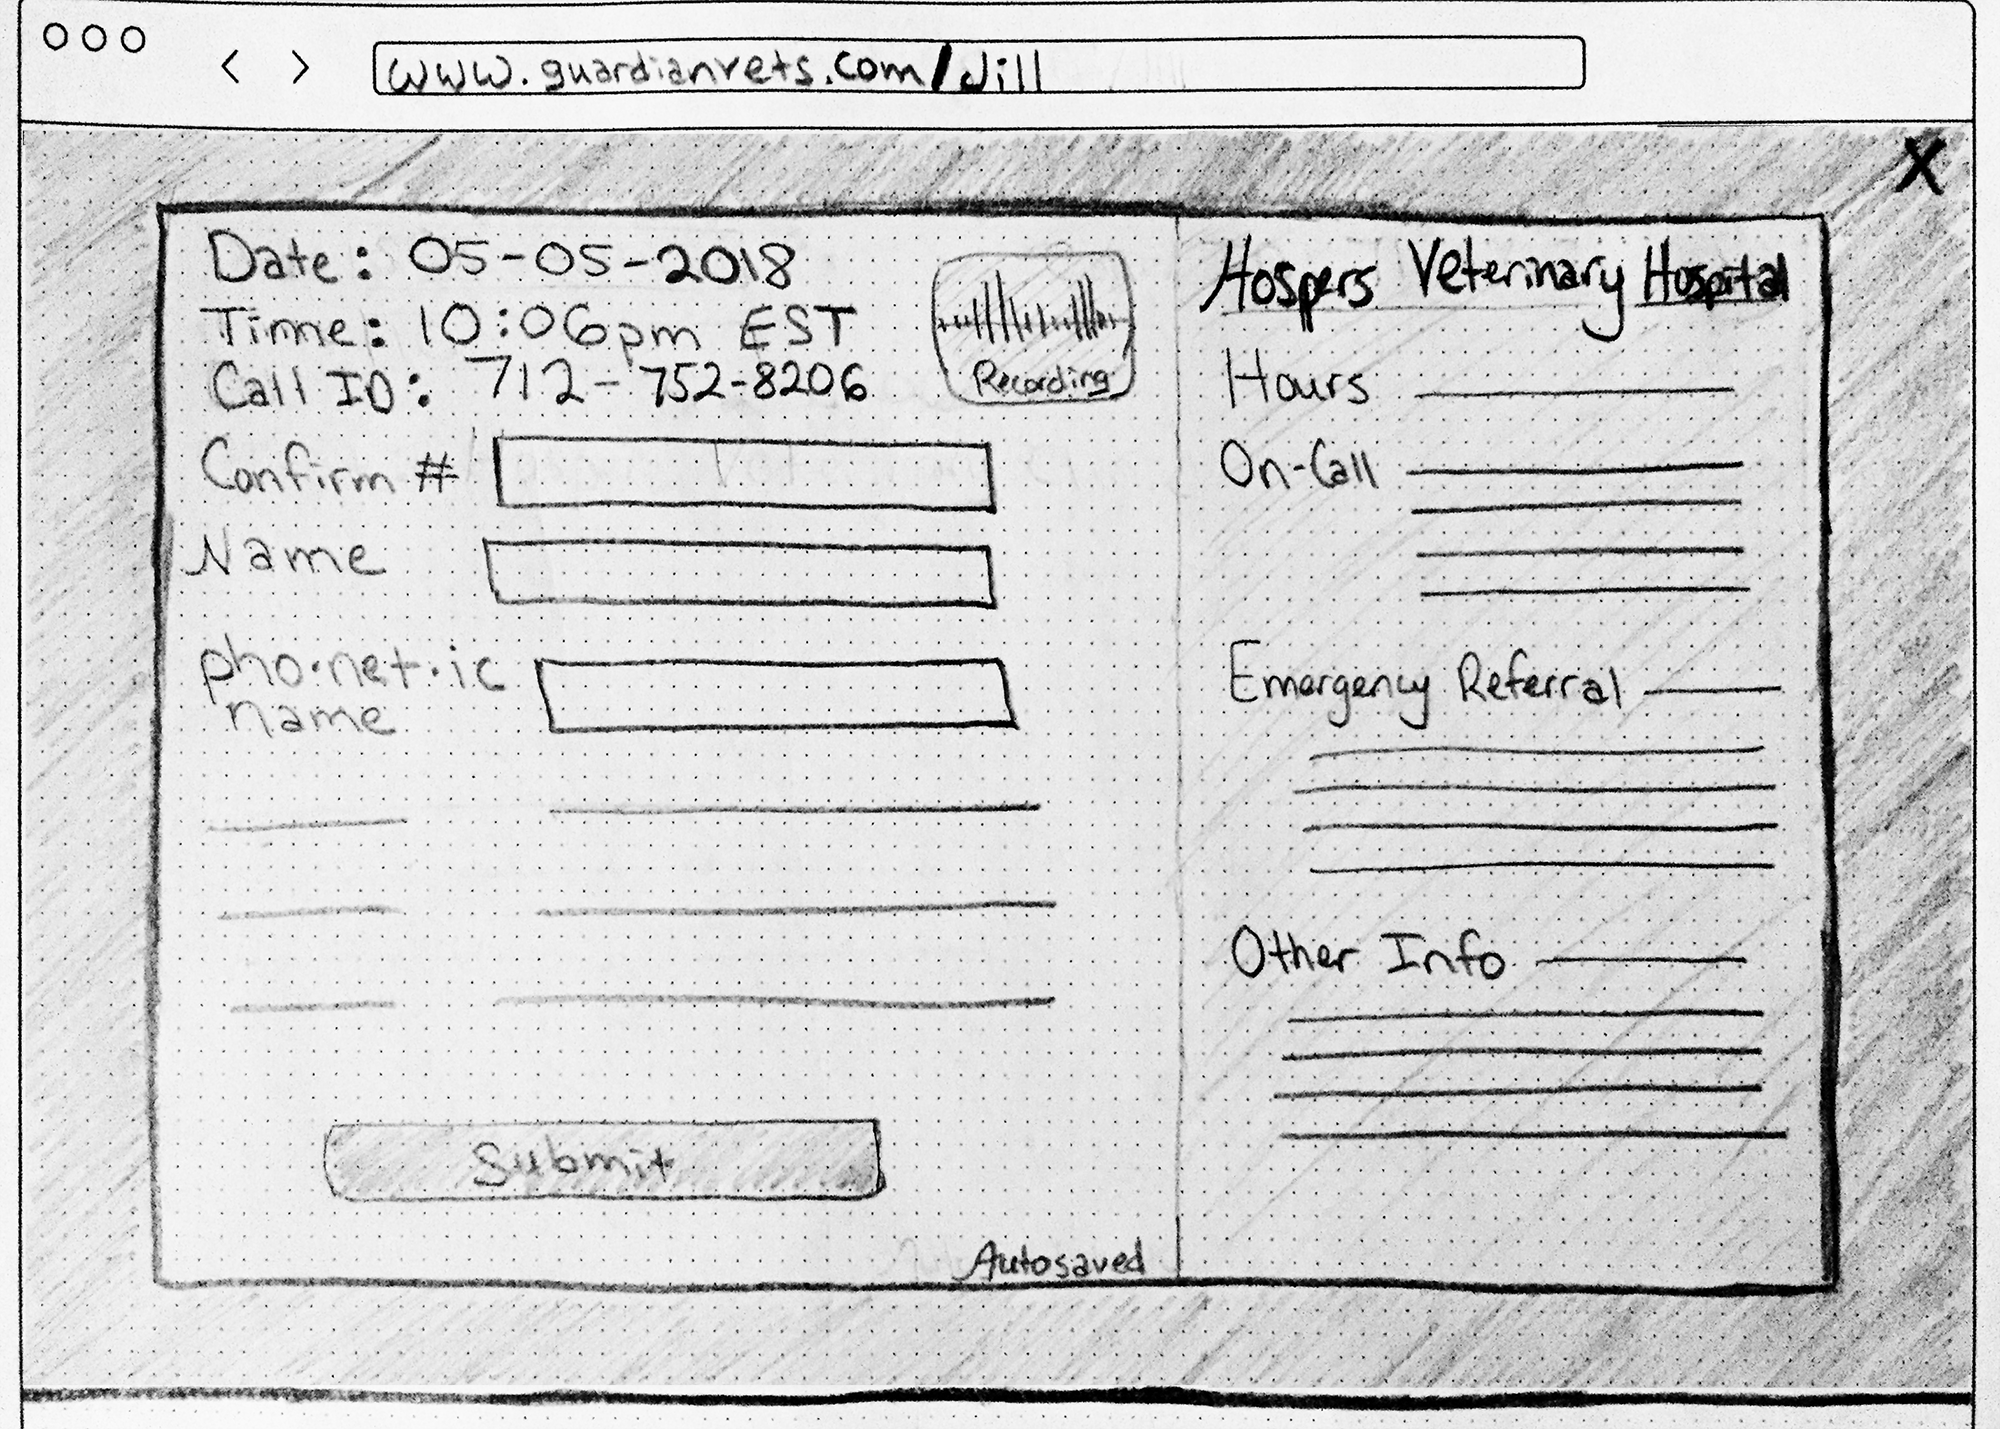 www.guardianvets.com/Jill
X
Date: 05-05-2018
Time: 10:06pm EST
Call ID: 712-752-8206
Recording
Confirm #
Name
pho·net·ic
name
Submit
Autosaved
Hospers Veterinary Hospital
Hours
On-Call
Emergency Referral
Other Info